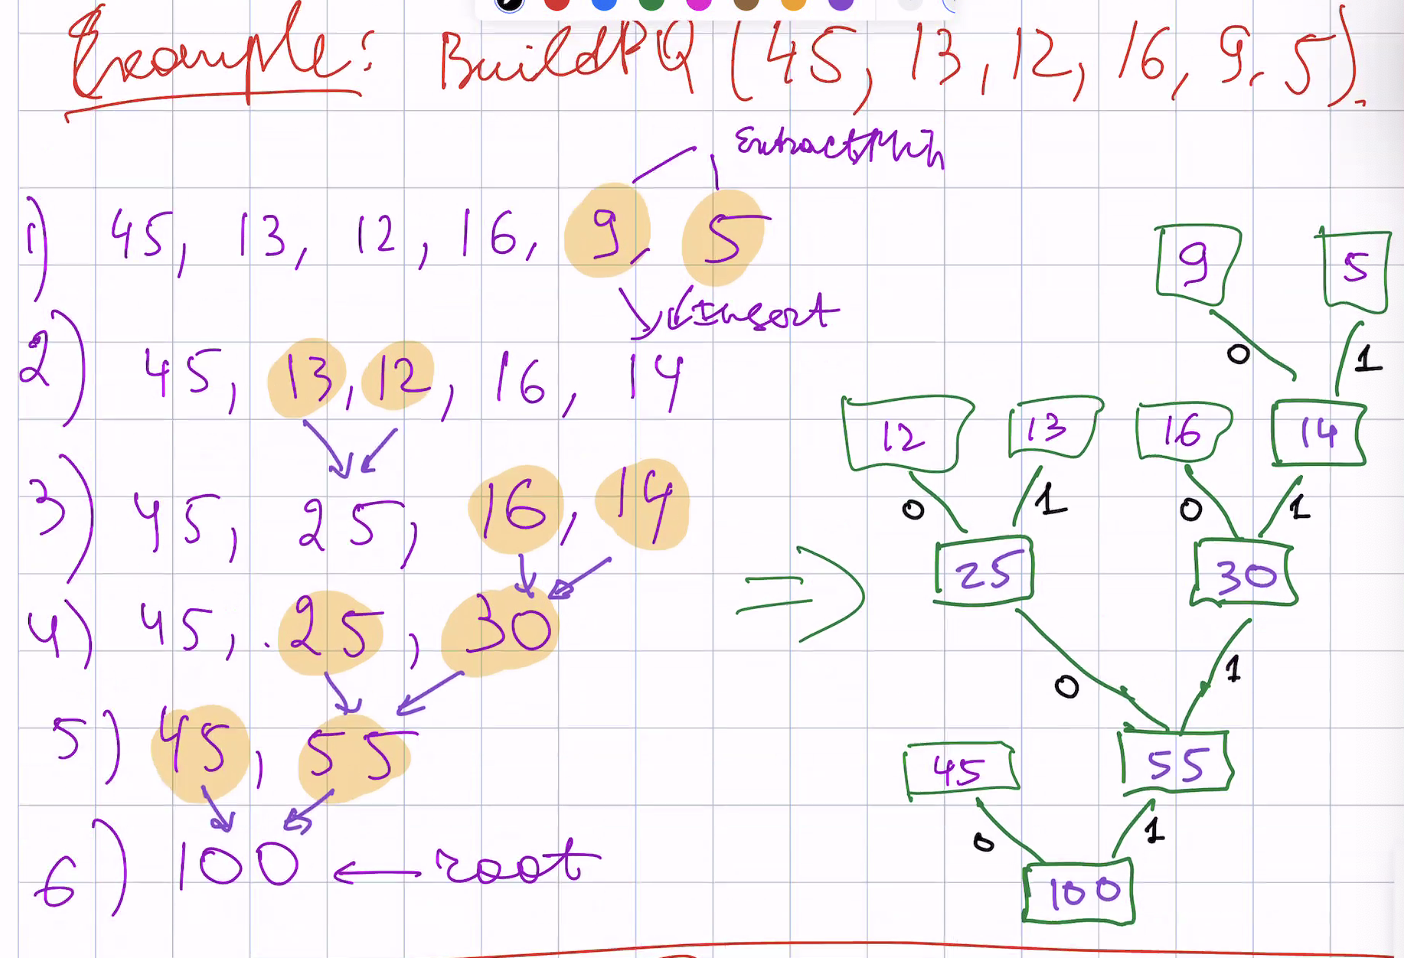 Example: BuildPQ (45, 13, 12, 16, 9, 5).
ExtractMin
1) 45, 13, 12, 16, 9, 5
Insert
2) 45, 13, 12, 16, 14
3) 45, 25, 16, 14
4) 45, 25, 30
5) 45, 55
6) 100 ← root
⇒
9 5
0 1
12 13 16 14
0 1 0 1
25 30
0 1
45 55
0 1
100